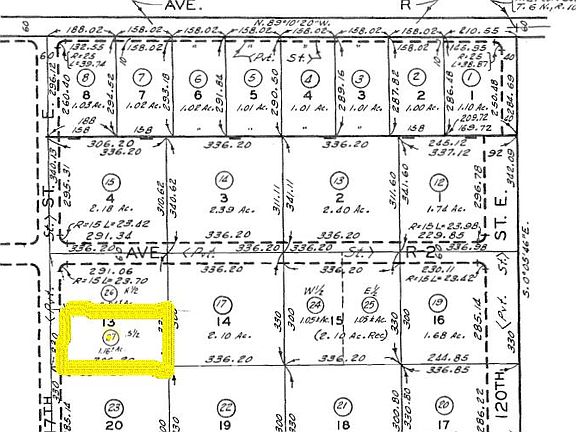 AVE. R
N. 89°10'20"W.
60 188.02 158.02 158.02 158.02 158.02 158.02 158.02 210.55 60
132.55 158.02 (Pvt. St.) 158.02 146.95
R=25 L=39.74 R=25 L=38.87
8 7 6 5 4 3 2 1
8 7 6 5 4 3 2 1
1.03 Ac. 1.02 Ac. 1.02 Ac. 1.01 Ac. 1.01 Ac. 1.01 Ac. 1.00 Ac. 1.10 Ac.
296.12 260.40 294.52 293.18 290.50 289.16 287.82 284.69
188 209.72
158 158 158 169.72
306.20 336.20 245.12 92
336.20 336.20 337.12
340.13 295.31 310.62 340.62 311.11 341.11 311.60 341.60 296.78 342.09
15 14 13 12
4 3 2 1
2.18 Ac. 2.39 Ac. 2.40 Ac. 1.74 Ac.
R=15 L=23.42 R=15 L=23.98
291.34 336.20 336.20 229.85
336.20 AVE. (Pvt. 336.20 St.) R-2 336.98
ST. E. ST. E.
S. 0°05'46"E.
291.06 336.20 336.20 230.11
R=15 L=23.70 R=15 L=23.42
26 N½ W½ E½
17 24 25 19
13 14 15 16
27 S½ 1.05 Ac. 1.05 Ac.
1.16 Ac. 2.10 Ac. (2.10 Ac. Rec) 1.68 Ac.
285.14 330
336.20 336.20 244.85
336.85
23 22 21 20
20 19 18 17
330 330 330 300.80 330.80 286.22
17TH 120TH